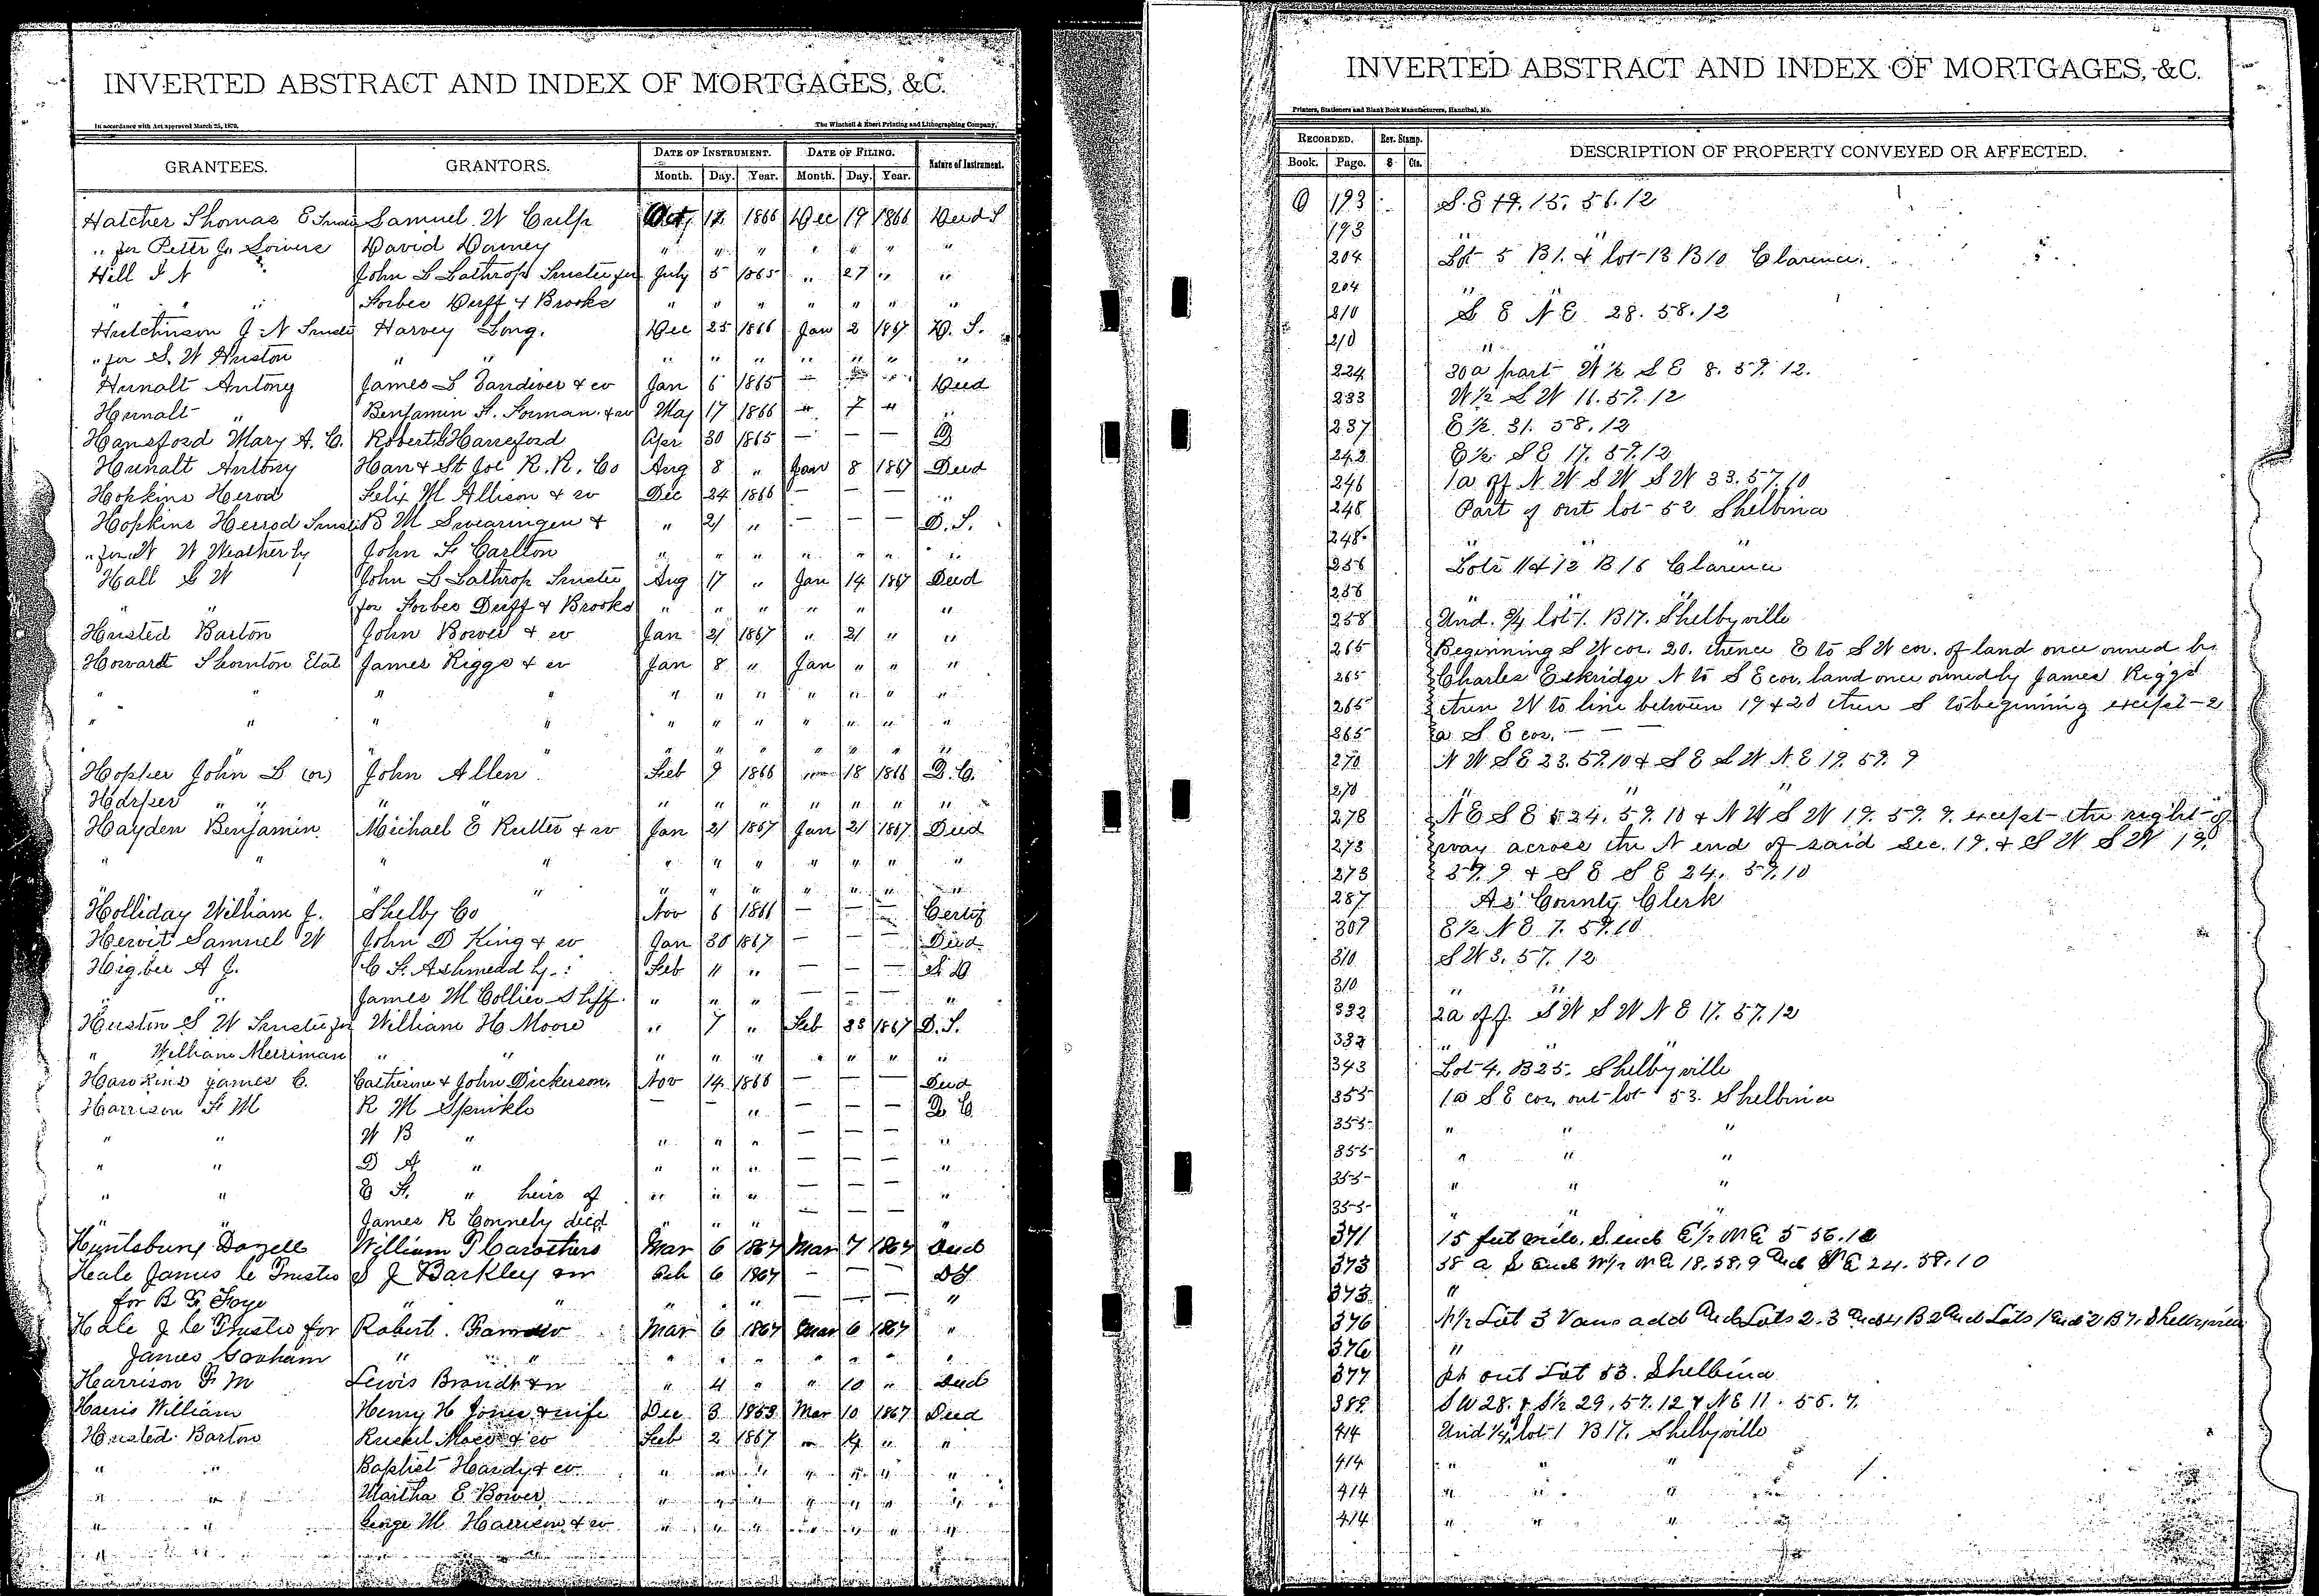 INVERTED ABSTRACT AND INDEX OF MORTGAGES, &C.
In accordance with Act approved March 25, 1872.
The Winchell & Ebert Printing and Lithographing Company,
GRANTEES. GRANTORS. DATE OF INSTRUMENT. DATE OF FILING. Nature of Instrument.
Month. Day. Year. Month. Day. Year.
Hatcher Thomas E Samuel W Culp Oct 12 1866 Dec 19 1866 Deed T
" for Peter J. Sowers David Dorney " " " " " " "
Hill I N John L Lathrop Trustee for July 5 1865 " 27 " "
" " " Forbes Duff & Brooks " " " " " " "
Hutchinson J N Trustee Harvey Long. Dec 25 1866 Jan 2 1867 D. T.
" for S. W Huston " " " " " " " " "
Hunalt Antony James L Vandiver & w Jan 6 1865 — — Deed
Hunalt " Benjamin F. Forman & w May 17 1866 " 7 " "
Hansford Mary A. C. Robert Hansford Apr 30 1865 — — — D
Hunalt Antony Han & St Joe R. R. Co Aug 8 " Jan 8 1867 Deed
Hopkins Herod Felix M Allison & w Dec 24 1866 — — — "
Hopkins Herrod Trustee B M Swearingen & " 21 " — — — D. T.
" for W W Weatherby John F Carlton " " " " " " "
Hall S W John L Lathrop Trustee Aug 17 " Jan 14 1867 Deed
" " for Forbes Duff & Brooks " " " " " " "
Husted Barton John Bower & w Jan 21 1867 " 21 " "
Howard Thornton Etal James Riggs & w Jan 8 " Jan " " "
" " " " " " " " " " "
" " " " " " " " " " "
" " " " " " " " " " "
Hopper John L (or) John Allen Feb 9 1866 — 18 1866 D. C.
Harper " " " " " " " " " " "
Hayden Benjamin Michael E Rutter & w Jan 21 1867 Jan 21 1867 Deed
" " " " " " " " " " "
" " " " " " " " " " "
Holliday William J. Shelby Co Nov 6 1866 — — — Certif
Hewit Samuel W John D King & w Jan 30 1867 — — — Deed
Higbee A J. C F. Ashmead by Feb 11 " — — — S D
" " James M Collier Shff. " " " — — — "
Huston S W Trustee for William H Moore " 7 " Feb 23 1867 D. T.
" William Merriman " " " " " " " " "
Hawkins James C. Catherine & John Dickerson. Nov 14 1866 — — — Deed
Harrison F M R M Sprinkle — — " — — — D C
" " W B " " " " — — — "
" " D A " " " " — — — "
" " E F. " heirs of " " " — — — "
" " James R Connely decd " " " — — — "
Huntsbury Dazell William P Carothers Mar 6 1867 Mar 7 1867 Deed
Heale James C Trustee S J Barkley & w Feb 6 1867 — — — DT
for B F Foye " " " " " — — — "
Hale J C Trustee for Robert Mar 6 1867 Mar 6 1867 "
James Gorham " " " " " " " " "
Harrison F M Lewis Brandt & w " 4 " " 10 " Deed
Harris William Henry H Jones & wife Dec 3 1853 Mar 10 1867 Deed
Husted Barton & w Feb 2 1867 " 14 " "
" " Baptist Hardy & w " " " " " " "
" " Martha E Bower " " " " " " "
" " George M Harrison & w " " " " " " "
" " "
INVERTED ABSTRACT AND INDEX OF MORTGAGES, &C.
Printers, Stationers and Blank Book Manufacturers, Hannibal, Mo.
RECORDED. Rev. Stamp. DESCRIPTION OF PROPERTY CONVEYED OR AFFECTED.
Book. Page. $ Cts.
Q 193 S. E 19. 15. 56. 12
193 "
204 Lot 5 B 1. & lot 13 B 10 Clarence.
204 "
210 S E N E 28. 58. 12
210 "
224 30 a part W ½ S E 8. 57. 12.
233 W ½ S W 16. 57. 12
237 E ½ 31. 58. 12
242 E ½ S E 17. 57. 12
246 1 a off N W S W S W 33. 57. 10
248 Part of out lot 52 Shelbina
248 " "
256 Lots 11 & 12 B 16 Clarence
256 " "
258 Und. ¾ lot 1. B 17. Shelbyville
265 Beginning S W cor. 20. thence E to S W cor. of land once owned by
265 Charles Eskridge N to S E cor. land once owned by James Riggs
265 then W to line between 19 & 20 then S to beginning except 2
265 a S E cor. — —
270 N W S E 23. 57. 10 & S E S W N E 19. 57. 9
270 " "
273 N E S E 24. 57. 10 & N W S W 19. 57. 9. except the right of
273 way across the N end of said Sec. 19. & S W S W 19.
273 57. 9 & S E S E 24. 57. 10
287 As County Clerk
307 E ½ N E 7. 57. 10
310 S W 3. 57. 12
310 " "
332 2 a off S W S W N E 17. 57. 12
332 " "
343 Lot 4. B 25. Shelbyville
355 1 a S E cor. out lot 53. Shelbina
355 " " "
355 " " "
355 " " "
355 " " "
371 15 feet wide, S end E ½ N E 5 56. 10
373 38 a S end W ½ N E 18. 58. 9 and N E 24. 58. 10
373 "
376 N ½ Lot 3 Vans add and Lots 2. 3 and 4 B 2 and Lots 1 and 2 B 7. Shelbyville
376 "
377 pt out Lot 53. Shelbina
389 S W 28. & S ½ 29. 57. 12 & N E 11. 56. 7.
414 Und ¼ lot 1 B 17. Shelbyville
414 " " "
414 " " "
414 " " "